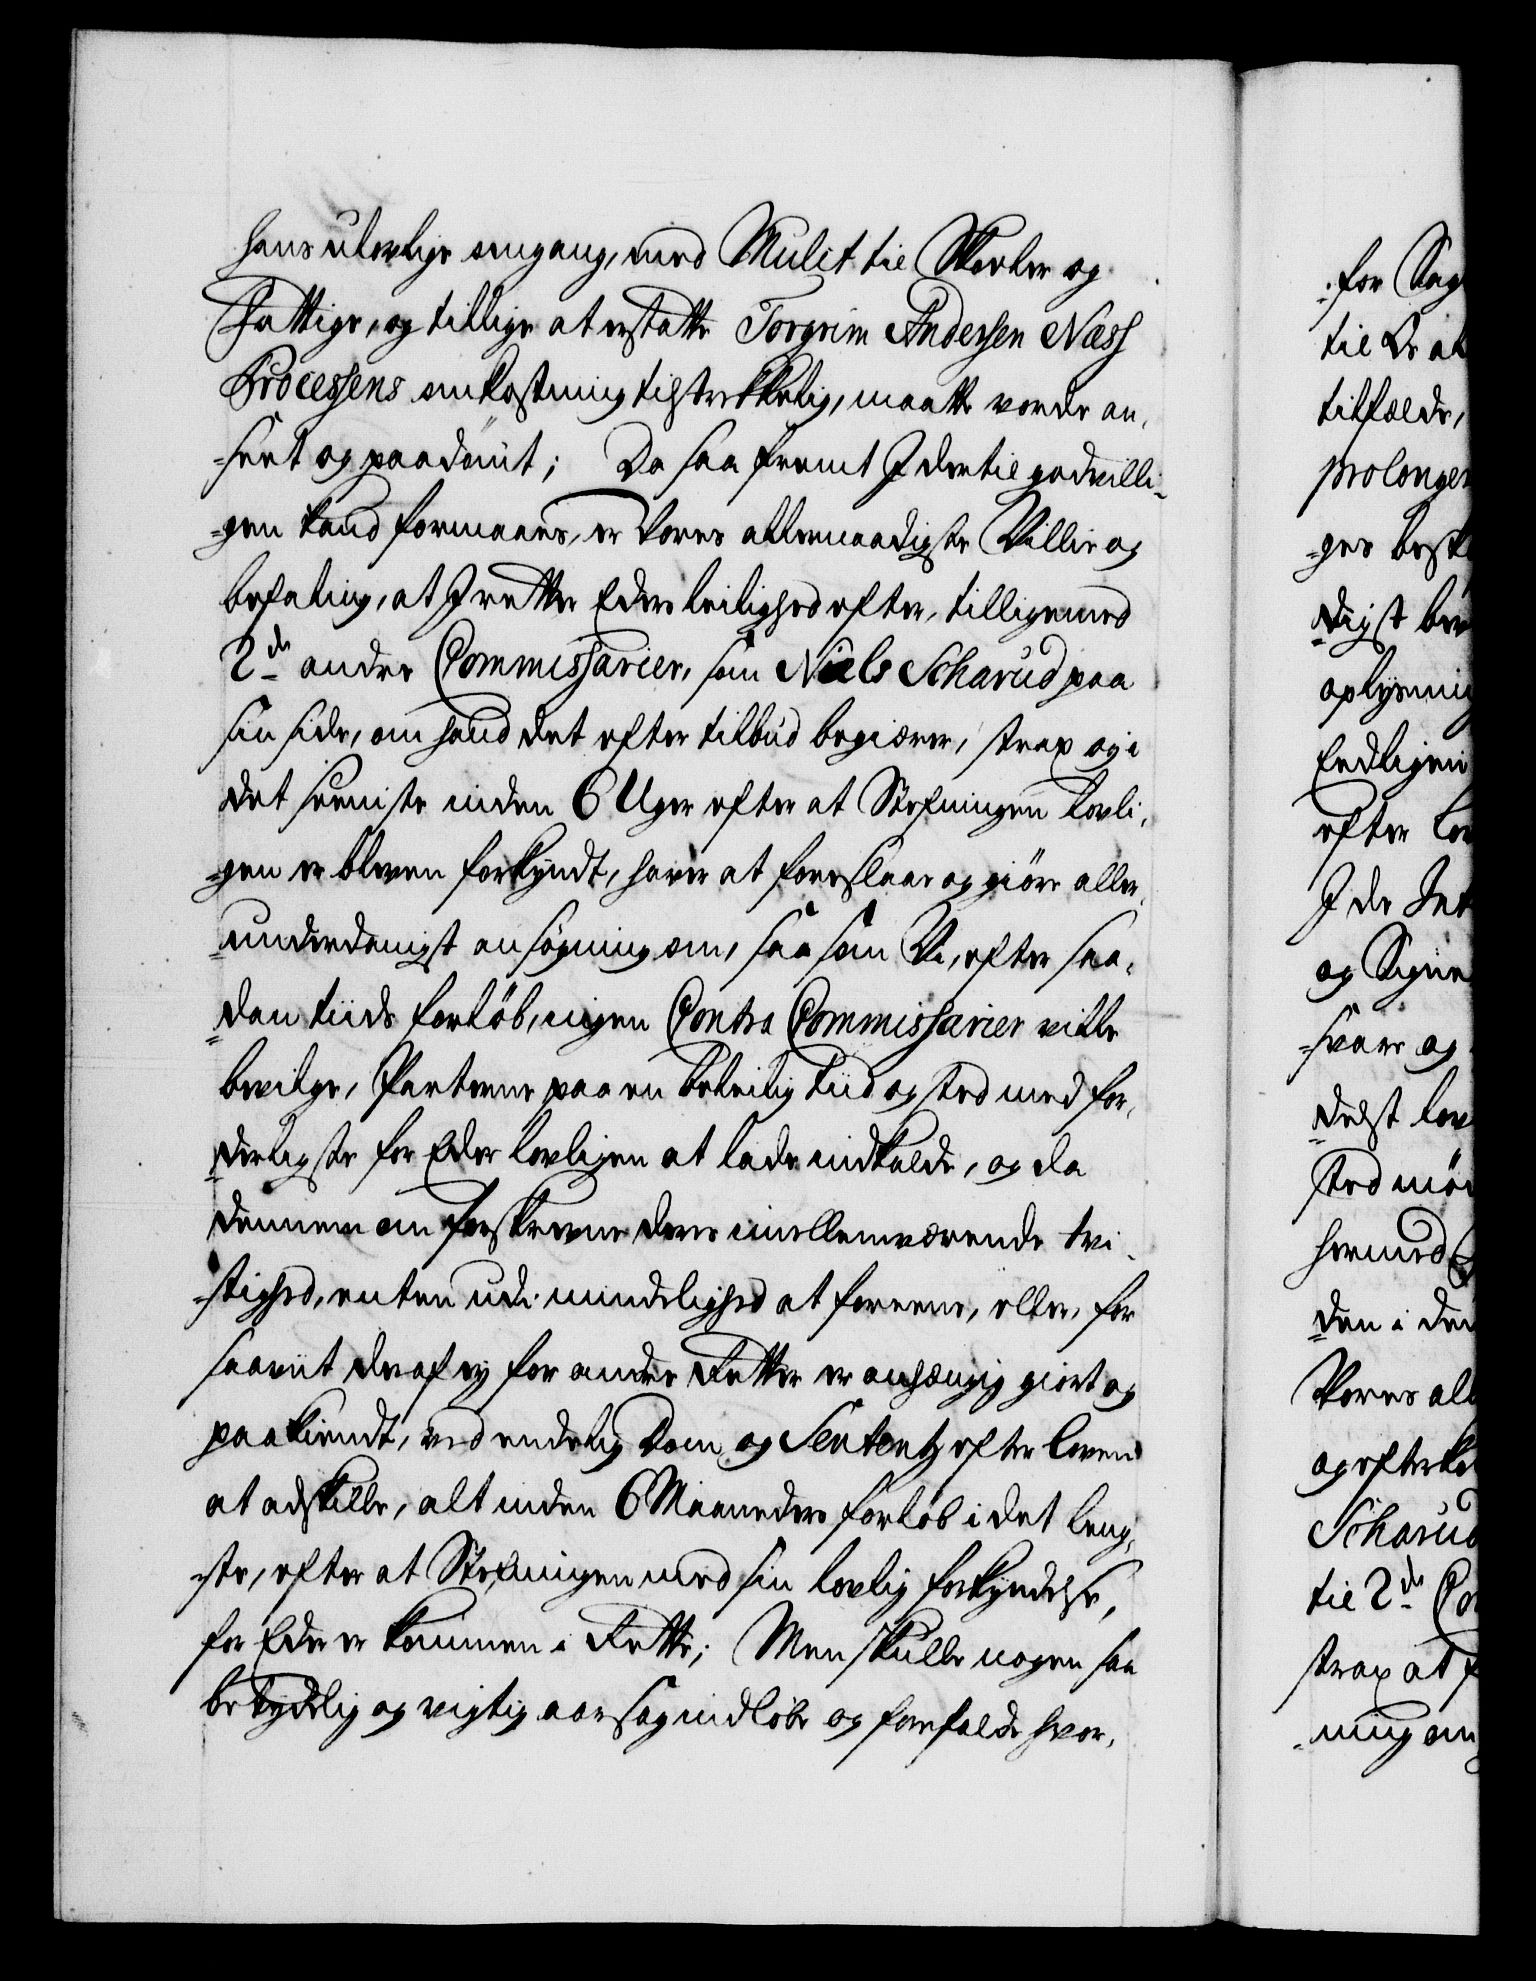 hans ulovlige omgang, med Mulct til Skoeler og
Fattige, og tillige at erstatte Torgrim Andersen Næss
Processens omkostning tilstrekkelig, maatte vorde an,
=seet og paadømt; Da saa fremt I dertil godvilli=
=gen kand formaaes, er Vores allernaadigste Villie og
befaling, at I retter Eders leilighed efter, tilligemed
2de andre Commissarier, som Niels Scharud paa
sin side, om hand det efter tilbud begiærer, strax og i
det seeniste inden 6 Uger efter at Stefningen lovli,
=gen er bleven forkyndt, haver at foreslaae og giøre aller,
=underdanigst ansøgning om, saa som Vi, efter saa,
=dan tiids forløb, ingen Contra Commissarier ville
bevilge, Parterne paa en beleilig tiid og sted med for,
=derligste for Eder lovligen at lade indkalde, og da
dennem om forskrevne deres imellemværende tvi,
=stighed, enten udi mindelighed at foreene, eller, for
saaviit deraf ej for andre Retter er anhængig giort og
paakiendt, ved endelig Dom og Sententz efter loven
at adskille, alt inden 6 Maaneders forløb i det leng,
=ste, efter at Stefningen med sin lovlig forkyndelse,
for Eder er kommen i Rette; Men skulle nogen saa
betydelig og vigtig aarsag indløbe og forefalde hvor,
=for Sag
til De at
tilfælde,
prolonger
=ges besk
=digst be
oplysnin
Endligen
efter lov
I de
og Signe
=svare og
=delst lov
sted mø
hermed
=den i den
Vores all
og efterko
Scharud
til 2de Co
strax at f
=ning om